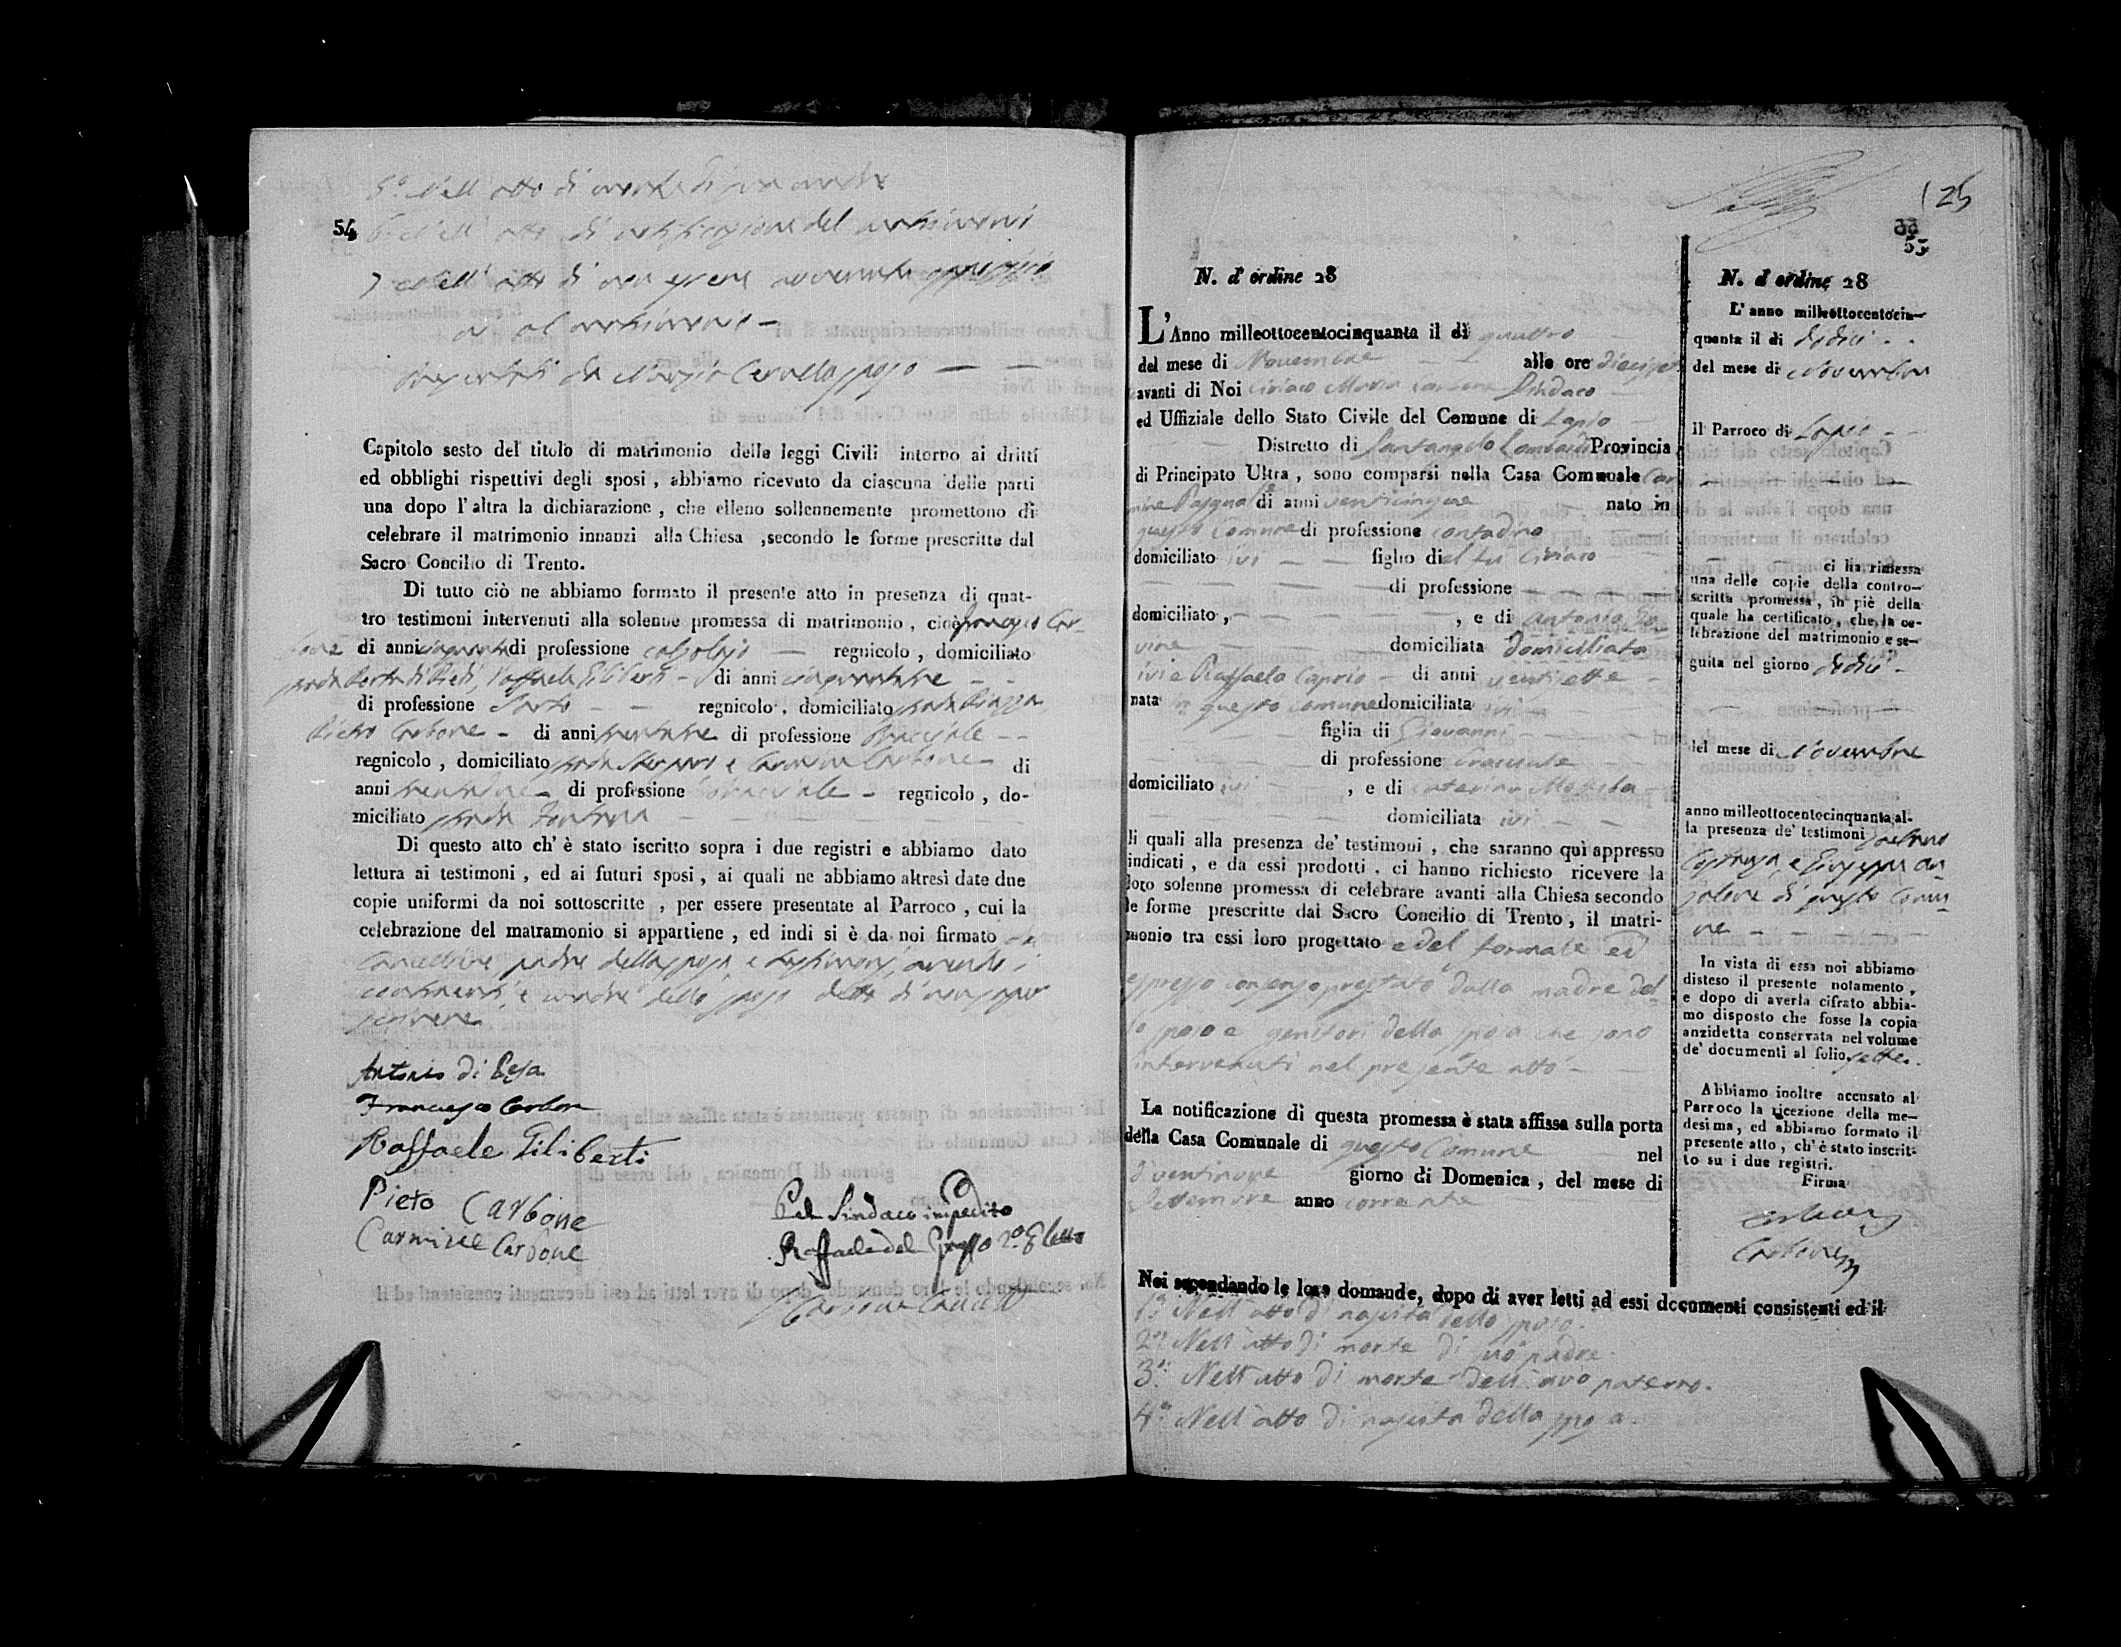 5.º Nell' atto di morte di
54
6.º Nell' atto di notificazione del matrimonio
7 Nell' atto di non essere avvenuta opposizio
ne al matrimonio –
presentati da sposo
Capitolo sesto del titolo di matrimonio delle leggi Civili intorno ai dritti
ed obblighi rispettivi degli sposi , abbiamo ricevuto da ciascuna delle parti
una dopo l'altra la dichiarazione , che elleno sollennemente promettono di
celebrare il matrimonio innanzi alla Chiesa ,secondo le forme prescritte dal
Sacro Concilio di Trento.
Di tutto ciò ne abbiamo formato il presente atto in presenza di quat-
tro testimoni intervenuti alla solenne promessa di matrimonio , cioè Francesco Car-
bone di anni cinquanta di professione calzolajo — regnicolo , domiciliato
strada Raffaele Filiberti – di anni
di professione Sarto – – regnicolo , domiciliato strada Piazza
Pietro Carbone – di anni di professione bracciale – –
regnicolo , domiciliato strada e Carmine Carbone – di
anni di professione bracciale – regnicolo , do-
miciliato strada Fontana
Di questo atto ch' è stato iscritto sopra i due registri e abbiamo dato
lettura ai testimoni , ed ai futuri sposi , ai quali ne abbiamo altresì date due
copie uniformi da noi sottoscritte , per essere presentate al Parroco , cui la
celebrazione del matramonio si appartiene , ed indi si è da noi firmato
Cancelliere padre della sposa e testimoni, avendo i
contraenti, e madre dello sposo detto di non saper
scrivere
Antonio di
Francesco Carbone
Raffaele Filiberti
Pieto Carbone
Carmine Carbone
Pel Sindaco impedito
Raffaele del Grosso 2.º Eletto
Carbone
125
55
N. d' ordine 28
L'Anno milleottocentocinquanta il dì quattro
del mese di Novembre alle ore
avanti di Noi Ciriaco Maria Carbone Sindaco
ed Uffiziale dello Stato Civile del Comune di Lapio
Distretto di Santangelo Lombardi Provincia
di Principato Ultra , sono comparsi nella Casa Comunale Car
mine Pasquale di anni venticinque nato in
questo Comune di professione contadino
domiciliato ivi – – figlio di el fu Ciriaco
di professione
domiciliato , , e di Antonia
domiciliata domiciliata
ivi e Raffaela Caprio – di anni ventisette
nata in questo comune domiciliata ivi –
figlia di Giovanni
di professione bracciale
domiciliato ivi , e di Caterina
domiciliata ivi
li quali alla presenza de' testimoni , che saranno quì appresso
indicati , e da essi prodotti , ci hanno richiesto ricevere la
loro solenne promessa di celebrare avanti alla Chiesa secondo
le forme prescritte dal Sacro Concilio di Trento , il matri-
monio tra essi loro progettato e del formale ed
espresso consenso prestato dalla madre del-
lo sposo e genitori della sposa che sono
intervenuti nel presente atto –
La notificazione di questa promessa è stata affissa sulla porta
della Casa Comunale di questo Comune nel
dì ventinove giorno di Domenica , del mese di
Settembre anno corrente
Noi secondando le loro domande, dopo di aver letti ad essi documenti consistenti ed il
1.º Nell' atto di nascita dello sposo.
2.º Nell' atto di morte di suo padre.
3.º Nell' atto di morte dell' avo paterno.
4.º Nell' atto di nascita della sposa.
N. d' ordine 28
L' anno milleottocentocin-
quanta il dì dodici . .
del mese di Novembre
il Parroco di Lapio –
ci ha rimessa
una delle copie della contro-
scritta promessa, in piè della
quale ha certificato , che la ce-
lebrazione del matrimonio e se-
guita nel giorno dodici –
del mese di Novembre
anno milleottocentocinquanta al-
la presenza de' testimoni
e Giuseppe
di questo Comu-
ne – – – –
In vista di essa noi abbiamo
disteso il presente notamento ,
e dopo di averla cifrato abbia-
mo disposto che fosse la copia
anzidetta conservata nel volume
de' documenti al folio sette.
Abbiamo inoltre accusato al
Parroco la ricezione della me-
desima, ed abbiamo formato il
presente atto , ch' è stato inscrit-
to su i due registri.
Firma